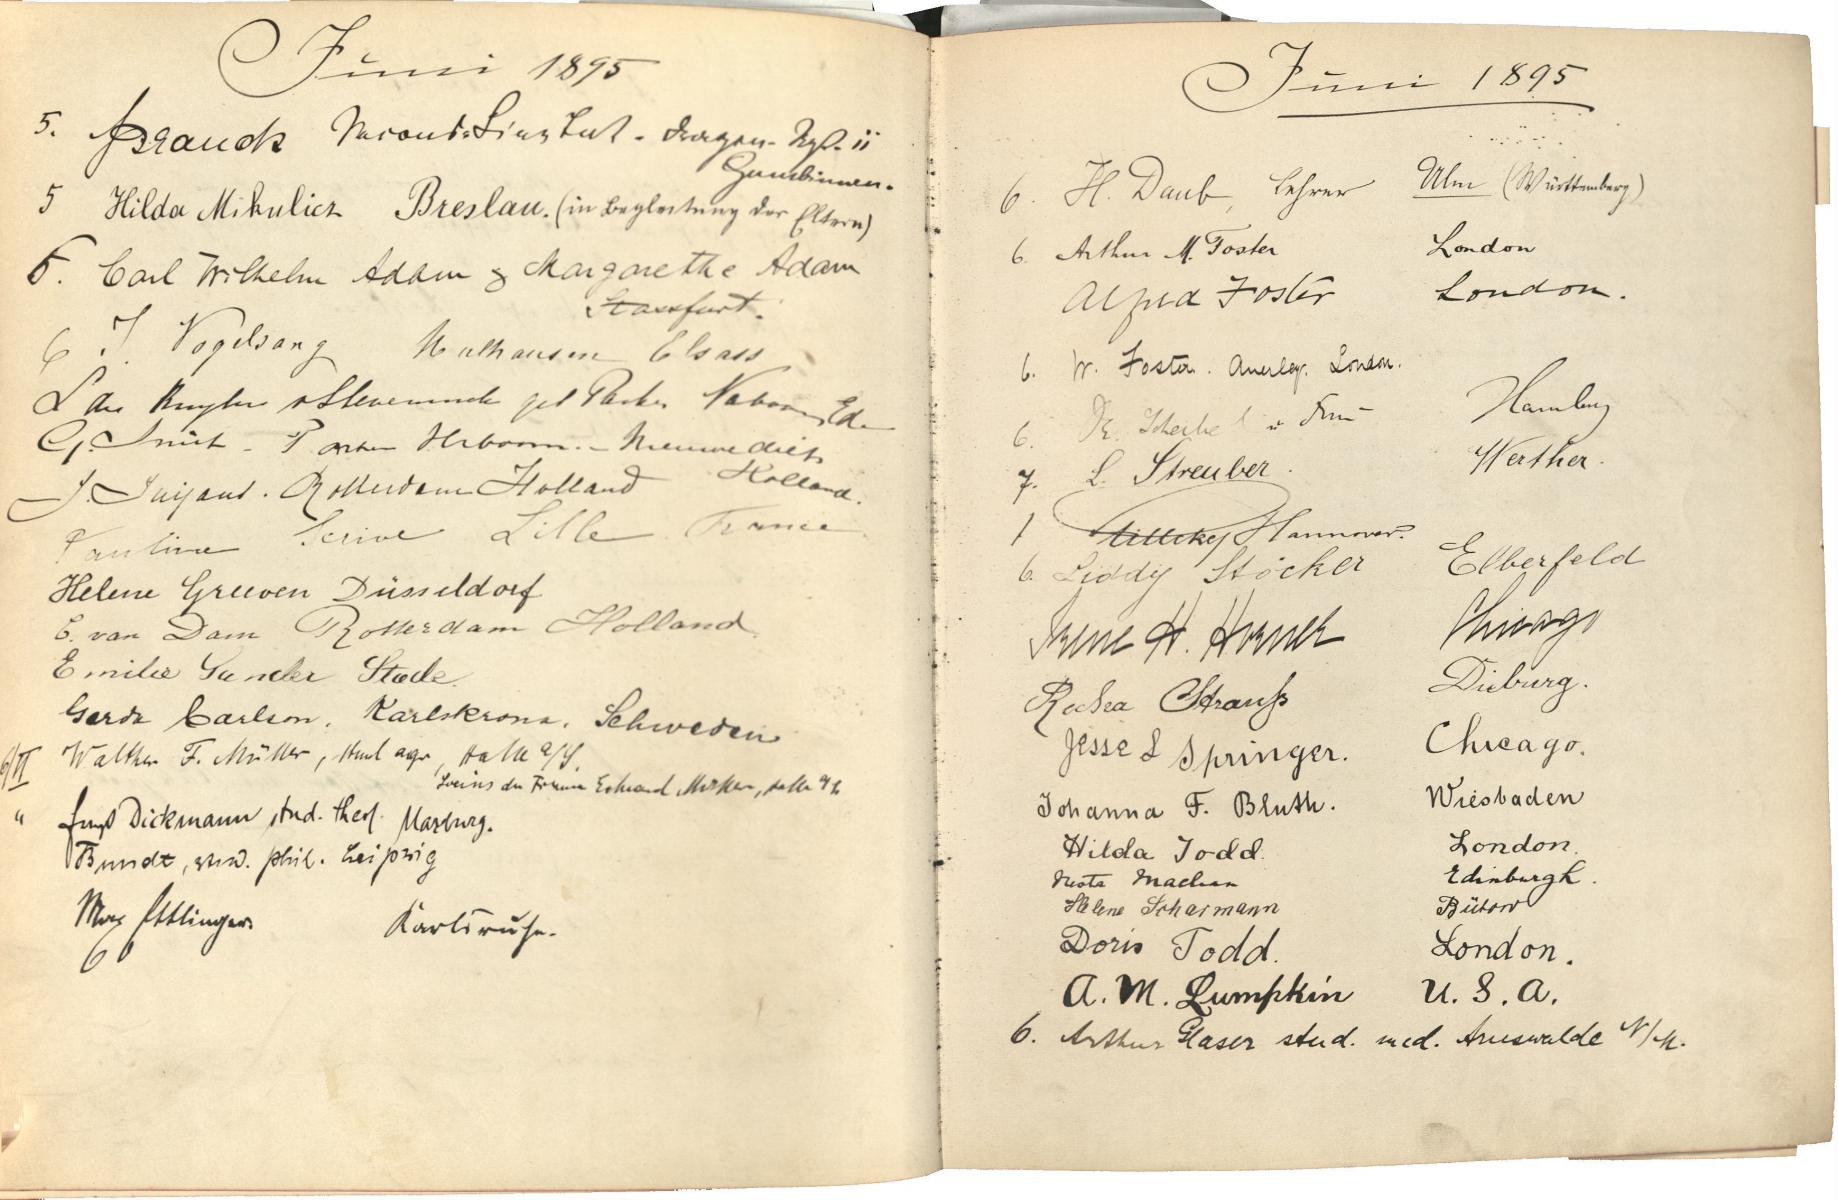 Juni 1895
5. Branck Second-Lieutenant. Dragon. Rgt. 11
Gumbinnen.
5 Hilda Mikulicz Breslau. (in Begleitung der Eltern)
5. Carl Wilhelm Adam & Margarethe Adam
Stassfurt.
6 J. Vogelsang Mulhausen Elsass
L de
G. Smit - Holland.
J. Rotterdam Holland
Pauline Scrive Lille France
Helene Greeven Düsseldorf
E. van Dam Rotterdam Holland
Emilie Sander Stade.
Gerda Carlson, Karlskrona, Schweden
6/VI Walther F. Müller, stud agr, Halle a/S.
" Ernst Dickmann stud. theol. Marburg.
Bundt, stud. phil. Leipzig
Max Ettlinger Karlsruhe.
6
Juni 1895
6. H. Daub, Lehrer Ulm (Württemberg)
6. Arthur M. Foster London
Alfred Foster London.
6. W. Foster. Anerley. London.
6. Dr. Scheibel u Frau Hamburg
7. L. Streuber. Werther.
1 Hannover.
6. Liddy Stöcker Elberfeld
Irene H. Horner Chicago
Recha Strauß Dieburg.
Jesse L Springer. Chicago.
Johanna F. Bluth. Wiesbaden
Hilda Todd. London.
Edinburgh.
Helene Scharmann Bütow
Doris Todd. London.
A. M. Lumpkin U. S. A.
6. Arthur Glaser stud. med. Arnswalde N/M.